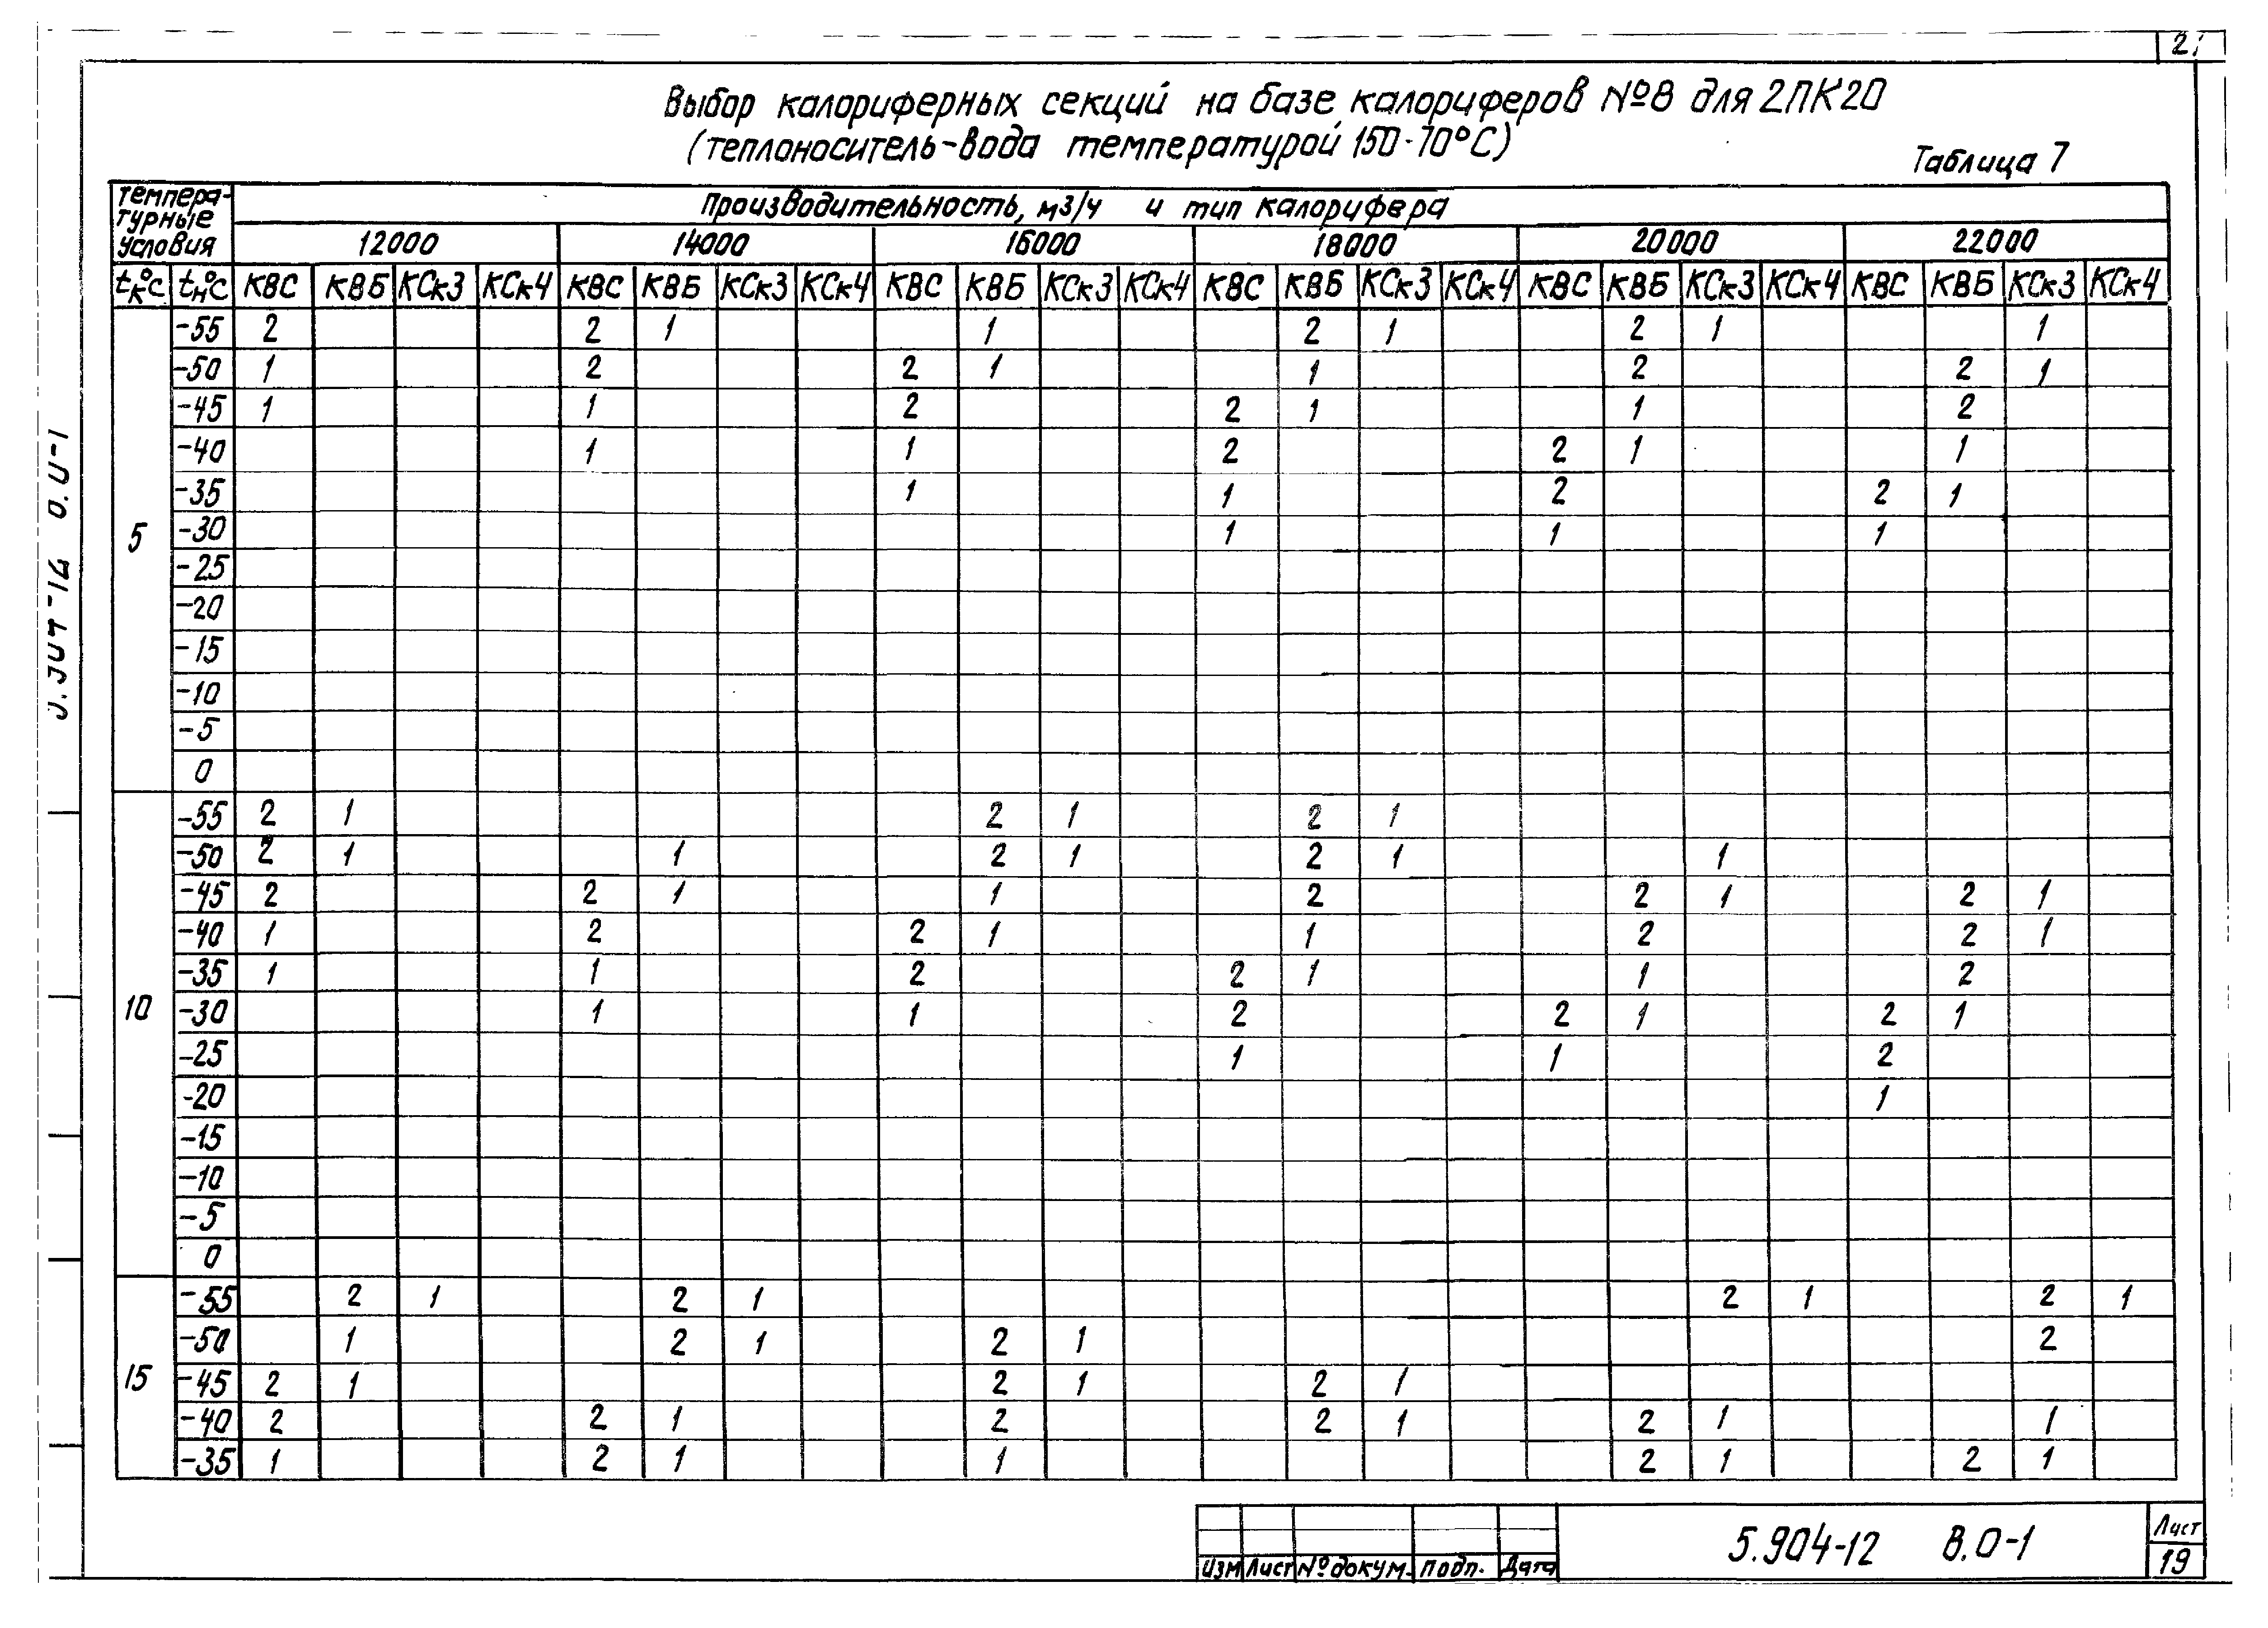 21
Выбор калориферных секций на базе калориферов №8 для 2ПК20
(теплоноситель-вода температурой 150-70°С)
Таблица 7
Температурные условия Производительность, м3/ч и тип калорифера
12000 14000 16000 18000 20000 22000
tк°С tн°С КВС КВБ КСк3 КСк4 КВС КВБ КСк3 КСк4 КВС КВБ КСк3 КСк4 КВС КВБ КСк3 КСк4 КВС КВБ КСк3 КСк4 КВС КВБ КСк3 КСк4
5
-55 2 2 1 1 2 1 2 1 1
-50 1 2 2 1 1 2 2 1
-45 1 1 2 2 1 1 2
-40 1 1 2 2 1 1
-35 1 1 2 2 1
-30 1 1 1
-25
-20
-15
-10
-5
0
10
-55 2 1 2 1 2 1
-50 2 1 1 2 1 2 1 1
-45 2 2 1 1 2 2 1 2 1
-40 1 2 2 1 1 2 2 1
-35 1 1 2 2 1 1 2
-30 1 1 2 2 1 2 1
-25 1 1 2
-20 1
-15
-10
-5
0
15
-55 2 1 2 1 2 1 2 1
-50 1 2 1 2 1 2
-45 2 1 2 1 2 1
-40 2 2 1 2 2 1 2 1 1
-35 1 2 1 1 2 1 2 1
Изм Лист № докум. Подп. Дата
5.904-12 В.0-1
Лист
19
5.904-12 В.0-1